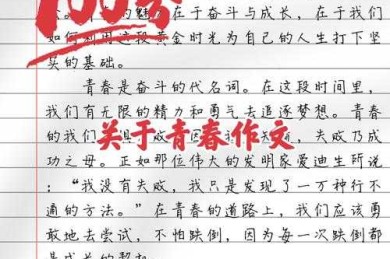 100分
的魅力在于奋斗与成长，在于我们
如何利用这段黄金时光为自己的人生打下坚
实的基础。
青春是奋斗的代名词。在这段时间里，
我们有无限的精力和勇气去追逐梦想。青春
的我们
关于青春作文
失败乃成
功之母。正如那位伟大的发明家爱迪生所说
：“我没有失败，我只是发现了一万种行不
通的方法。”在青春的道路上，我们应该勇
敢地去尝试，不怕跌倒，因为每一次跌倒都
是成长的契机